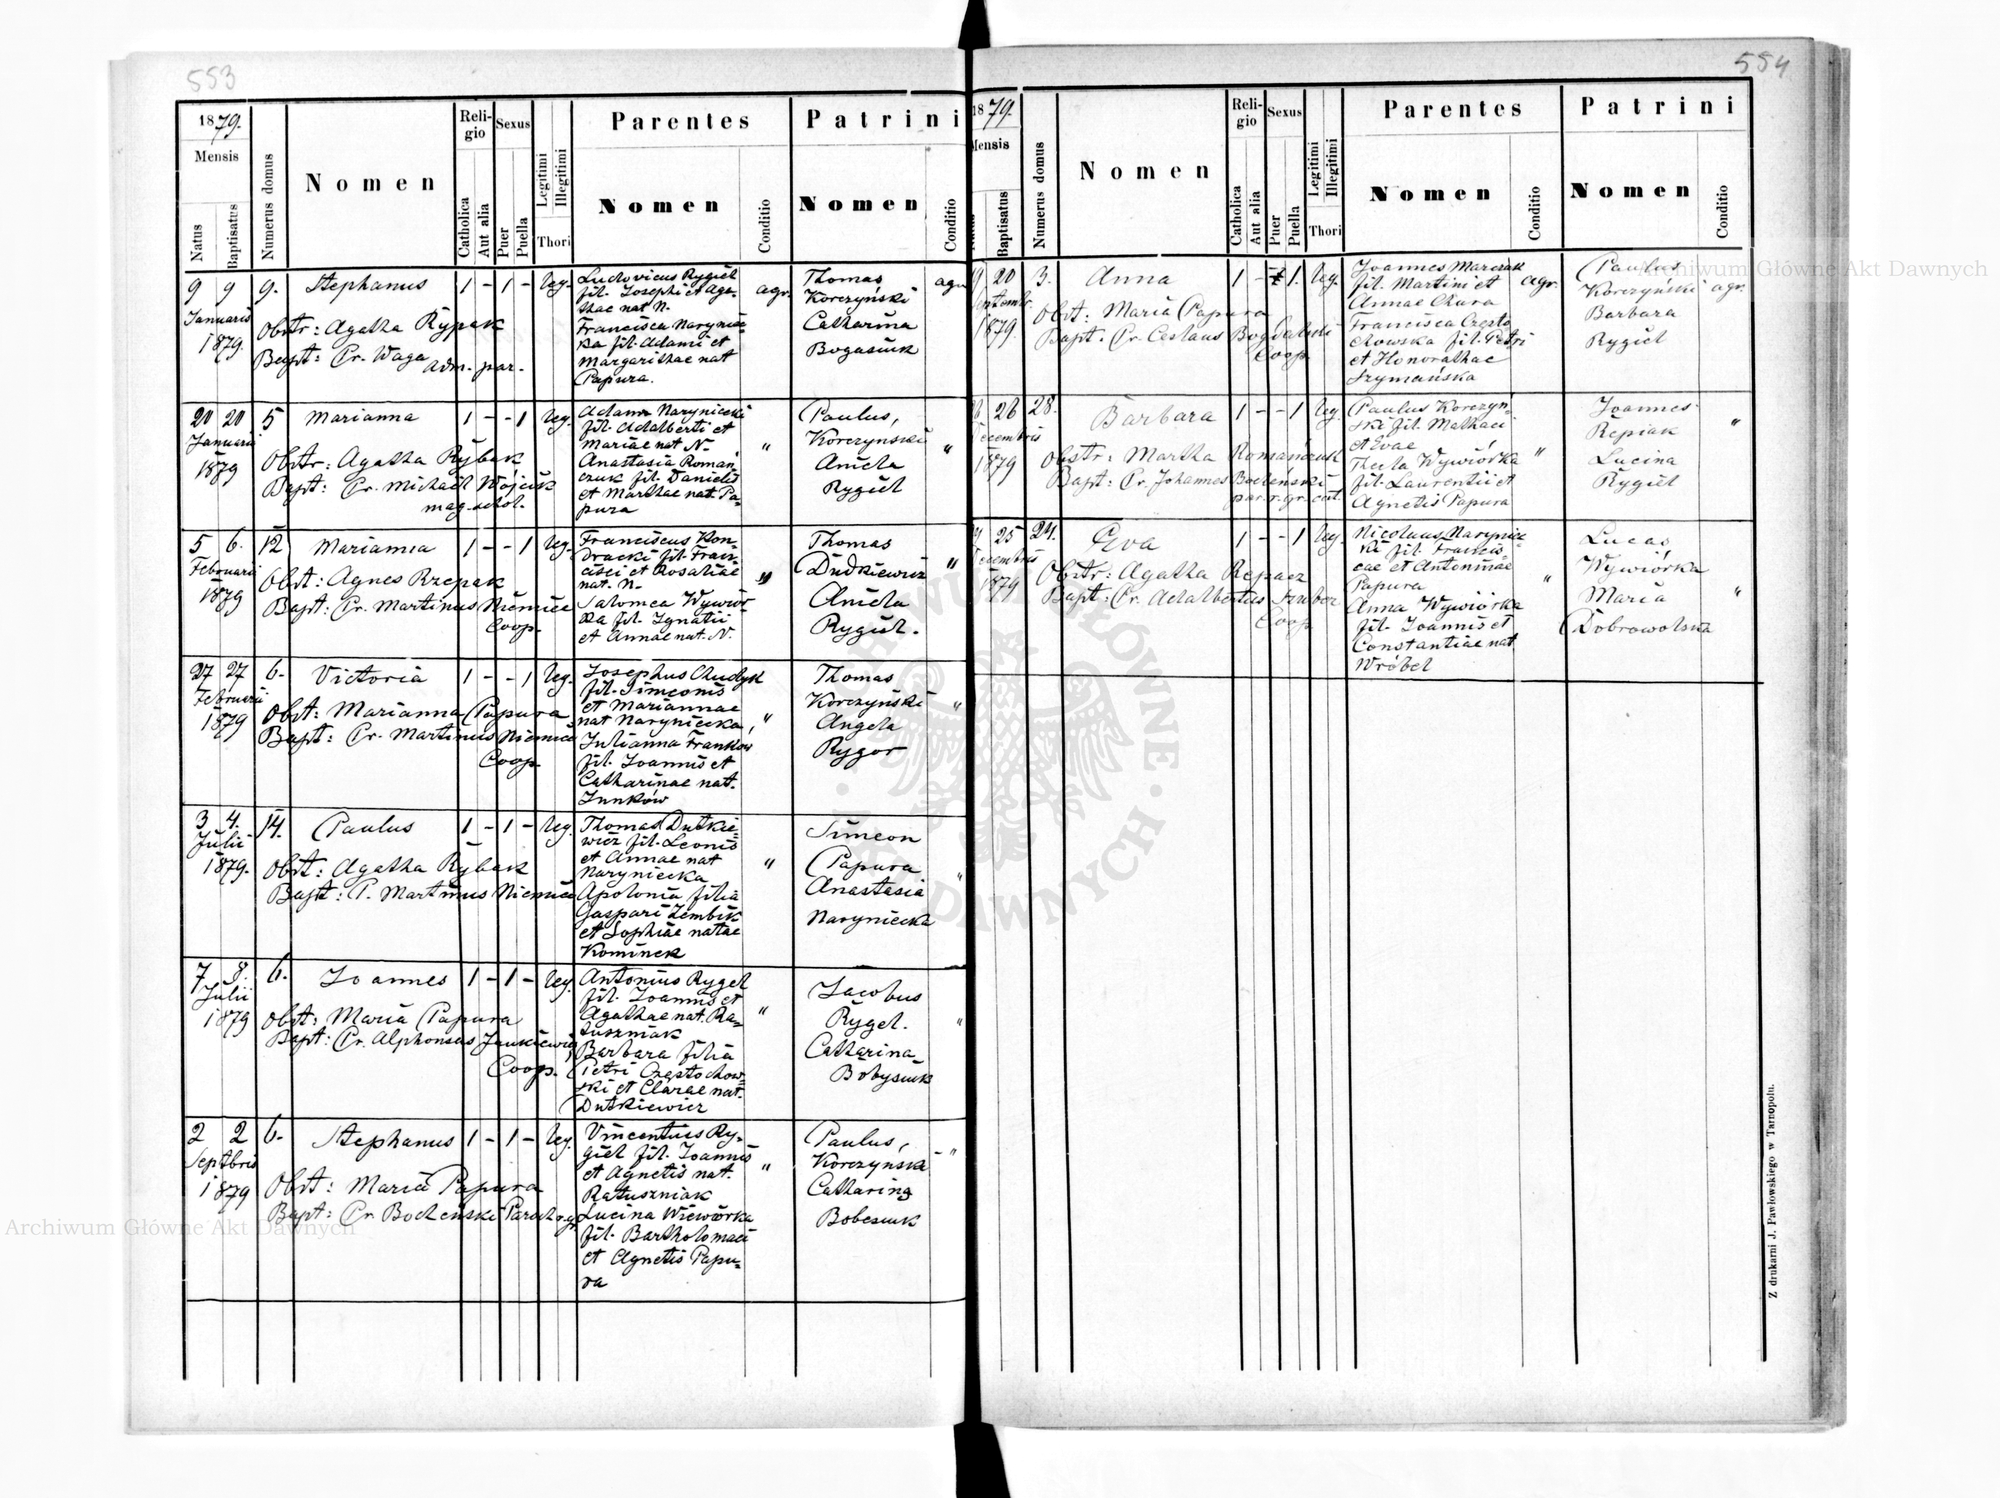 553
1879.
Mensis
Natus
Baptisatus
Numerus domus
Nomen
Religio
Catholica
Aut alia
Sexus
Puer
Puella
Legitimi
Illegitimi
Thori
Parentes
Nomen
Conditio
Patrini
Nomen
Conditio
9 9 9. Stephanus 1 - 1 - leg.
Januarii
1879.
Obstr: Agatha Rypak
Bapt: Pr. Waga adm. par.
Ludovicus Rygiel
fil. Josephi et Aga-
thae nat N.
Francisca Naryniec
ka fil. Adami et
Margarithae nat
Papura.
agr.
Thomas
Korczyński
Catharina
Bogasiuk
agr.
20 20 5 Marianna 1 - - 1 leg.
Januarii
1879
Obstr: Agatha Rybak
Bapt: Pr. Michaël Wojciuk
mag. schol.
Adam Naryniecki
fil. Adalberti et
Mariae nat N.
Anastasia Roman
czuk fil. Danielis
et Marthae nat. Pa-
pura
"
Paulus,
Korczynski
Aniela
Rygiel
"
5 6. 12 Marianna 1 - - 1 leg.
Februarii
1879
Obst: Agnes Rzepak
Bapt: Pr. Martinus Niemiec
Coop.
Franciscus Kon-
dracki fil. Fran-
cisci et Rosaliae
nat. N.
Salomea Wywiór-
ka fil. Ignatii
et Annae nat. N.
"
Thomas
Dudkiewicz
Aniela
Rygiel.
"
27 27 6. Victoria 1 - - 1 leg.
Februarii
1879
Obst: Marianna Papura
Bapt: Pr. Martinus Niemiec
Coop.
Josephus Chudyk
fil. Simeonis
et Mariannae
nat Naryniecka,
Julianna Frankow
fil. Joannis et
Catharinae nat.
"
Thomas
Korczyński
Angela
Rygor
"
3 4. 14. Paulus 1 - 1 - leg.
Julii
1879.
Obst: Agatha Rybak
Bapt: P. Martinus Niemiec
Thomas Dutkie-
wicz fil. Leonis
et Annae nat
Naryniecka
Apolonia filia
Gaspari Zembik
et Sophiae natae
Kominek
"
Simeon
Papura
Anastasia
Naryniecka
"
7 8. 6. Joannes 1 - 1 - leg.
Julii
1879
Obst: Maria Papura
Bapt: Pr. Alphonsus Jankiewicz
Coop.
Antonius Rygel
fil. Joannis et
Agathae nat. Ra-
tuszniak
Barbara filia
Petri Częstochow-
ski et Clarae nat.
Dutkiewicz
"
Jacobus
Rygel.
Catharina
Bobysiuk
"
2 2 6. Stephanus 1 - 1 - leg.
Septbris
1879
Obst: Maria Papura
Bapt: Pr Bocheński Paroch r. gr.
Vincentius Ry-
giel fil. Joannis
et Agnetis nat.
Ratuszniak
Lucina Wiewiórka
fil. Bartholomaei
et Agnetis Papu-
ra
"
Paulus,
Korczyński
Catharina
Bobesiuk
"
554
1879.
Mensis
Baptisatus
Numerus domus
Nomen
Religio
Catholica
Aut alia
Sexus
Puer
Puella
Legitimi
Illegitimi
Thori
Parentes
Nomen
Conditio
Patrini
Nomen
Conditio
19 20 3. Anna 1 - 1. leg.
Septembr.
1879.
Obst: Maria Papura
Bapt. Pr. Ceslaus Bogdalski
Coop.
Joannes Marczak
fil. Martini et
Annae Chara
Francisca Często
chowska fil. Petri
et Honorathae
Szymańska
agr.
Paulus
Korczyński
Barbara
Rygiel
agr.
26 26 28. Barbara 1 - - 1 leg.
Decembris
1879
Obstr: Martha Romańczuk
Bapt: Pr. Johannes Bocheński
par. r. gr. cat.
Paulus Korczyń-
ski fil. Mathaei
et Evae
Thecla Wywiórka
fil. Laurentii et
Agnetis Papura
"
Joannes
Repiak
Lucina
Rygiel
"
25 24. Eva 1 - - 1 leg.
Decembris
1879
Obstr: Agatha Repacz
Bapt: Pr. Adalbertus Szuber
Coop.
Nicolaus Naryniec-
ki fil. Francis-
cae et Antoninae
Papura
Anna Wywiórka
fil. Joannis et
Constantiae nat
Wróbel
"
Lucas
Wywiórka
Maria
Dobrowolska
"
Z drukarni J. Pawłowskiego w Tarnopolu.
Archiwum Główne Akt Dawnych
Archiwum Główne Akt Dawnych
ARCHIWUM GŁÓWNE AKT DAWNYCH